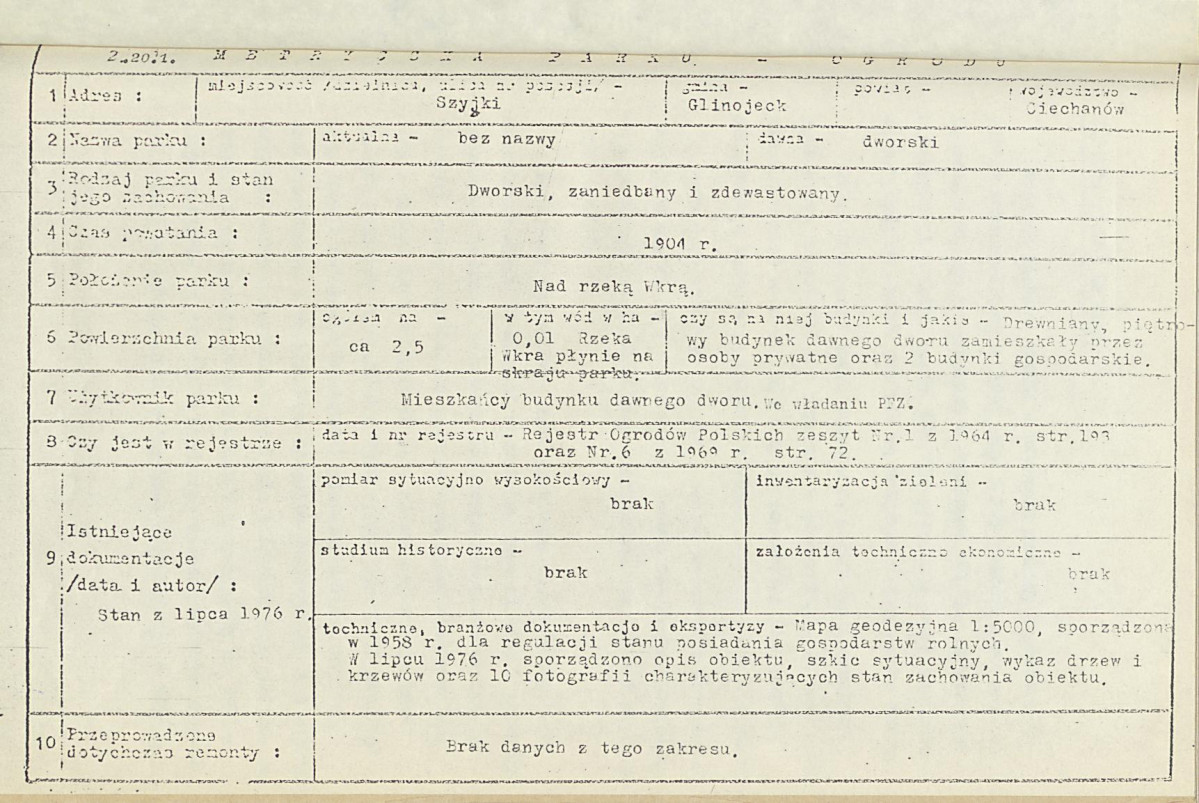 2.20.1. METRYCZKA PARKU - OGRODU
1 Adres : miejscowość /dzielnica, ulica nr posesji/ - gmina - powiat - województwo -
Szyjki Glinojeck Ciechanów
2 Nazwa parku : aktualna - bez nazwy dawna - dworski
3 Rodzaj parku i stan
jego zachowania : Dworski, zaniedbany i zdewastowany.
4 Czas powstania : 1904 r.
5 Położenie parku : Nad rzeką Wkrą.
6 Powierzchnia parku : ogółem ha - ca 2,5
w tym wód w ha -
0,01 Rzeka
Wkra płynie na
skraju parku.
czy są na niej budynki i jakie - Drewniany, piętro-
wy budynek dawnego dworu zamieszkały przez
osoby prywatne oraz 2 budynki gospodarskie.
7 Użytkownik parku : Mieszkańcy budynku dawnego dworu. We władaniu PFZ.
8 Czy jest w rejestrze : data i nr rejestru - Rejestr Ogrodów Polskich zeszyt Nr.1 z 1964 r. str.193
oraz Nr.6 z 1969 r. str. 72.
9 Istniejące
dokumentacje
/data i autor/ :
Stan z lipca 1976 r.
pomiar sytuacyjno wysokościowy -
brak
inwentaryzacja zieleni -
brak
studium historyczne -
brak
założenia techniczno ekonomiczne -
brak
techniczne, branżowe dokumentacje i ekspertyzy - Mapa geodezyjna 1:5000, sporządzona
w 1958 r. dla regulacji stanu posiadania gospodarstw rolnych.
W lipcu 1976 r. sporządzono opis obiektu, szkic sytuacyjny, wykaz drzew i
krzewów oraz 10 fotografii charakteryzujących stan zachowania obiektu.
10 Przeprowadzone
dotychczas remonty : Brak danych z tego zakresu.